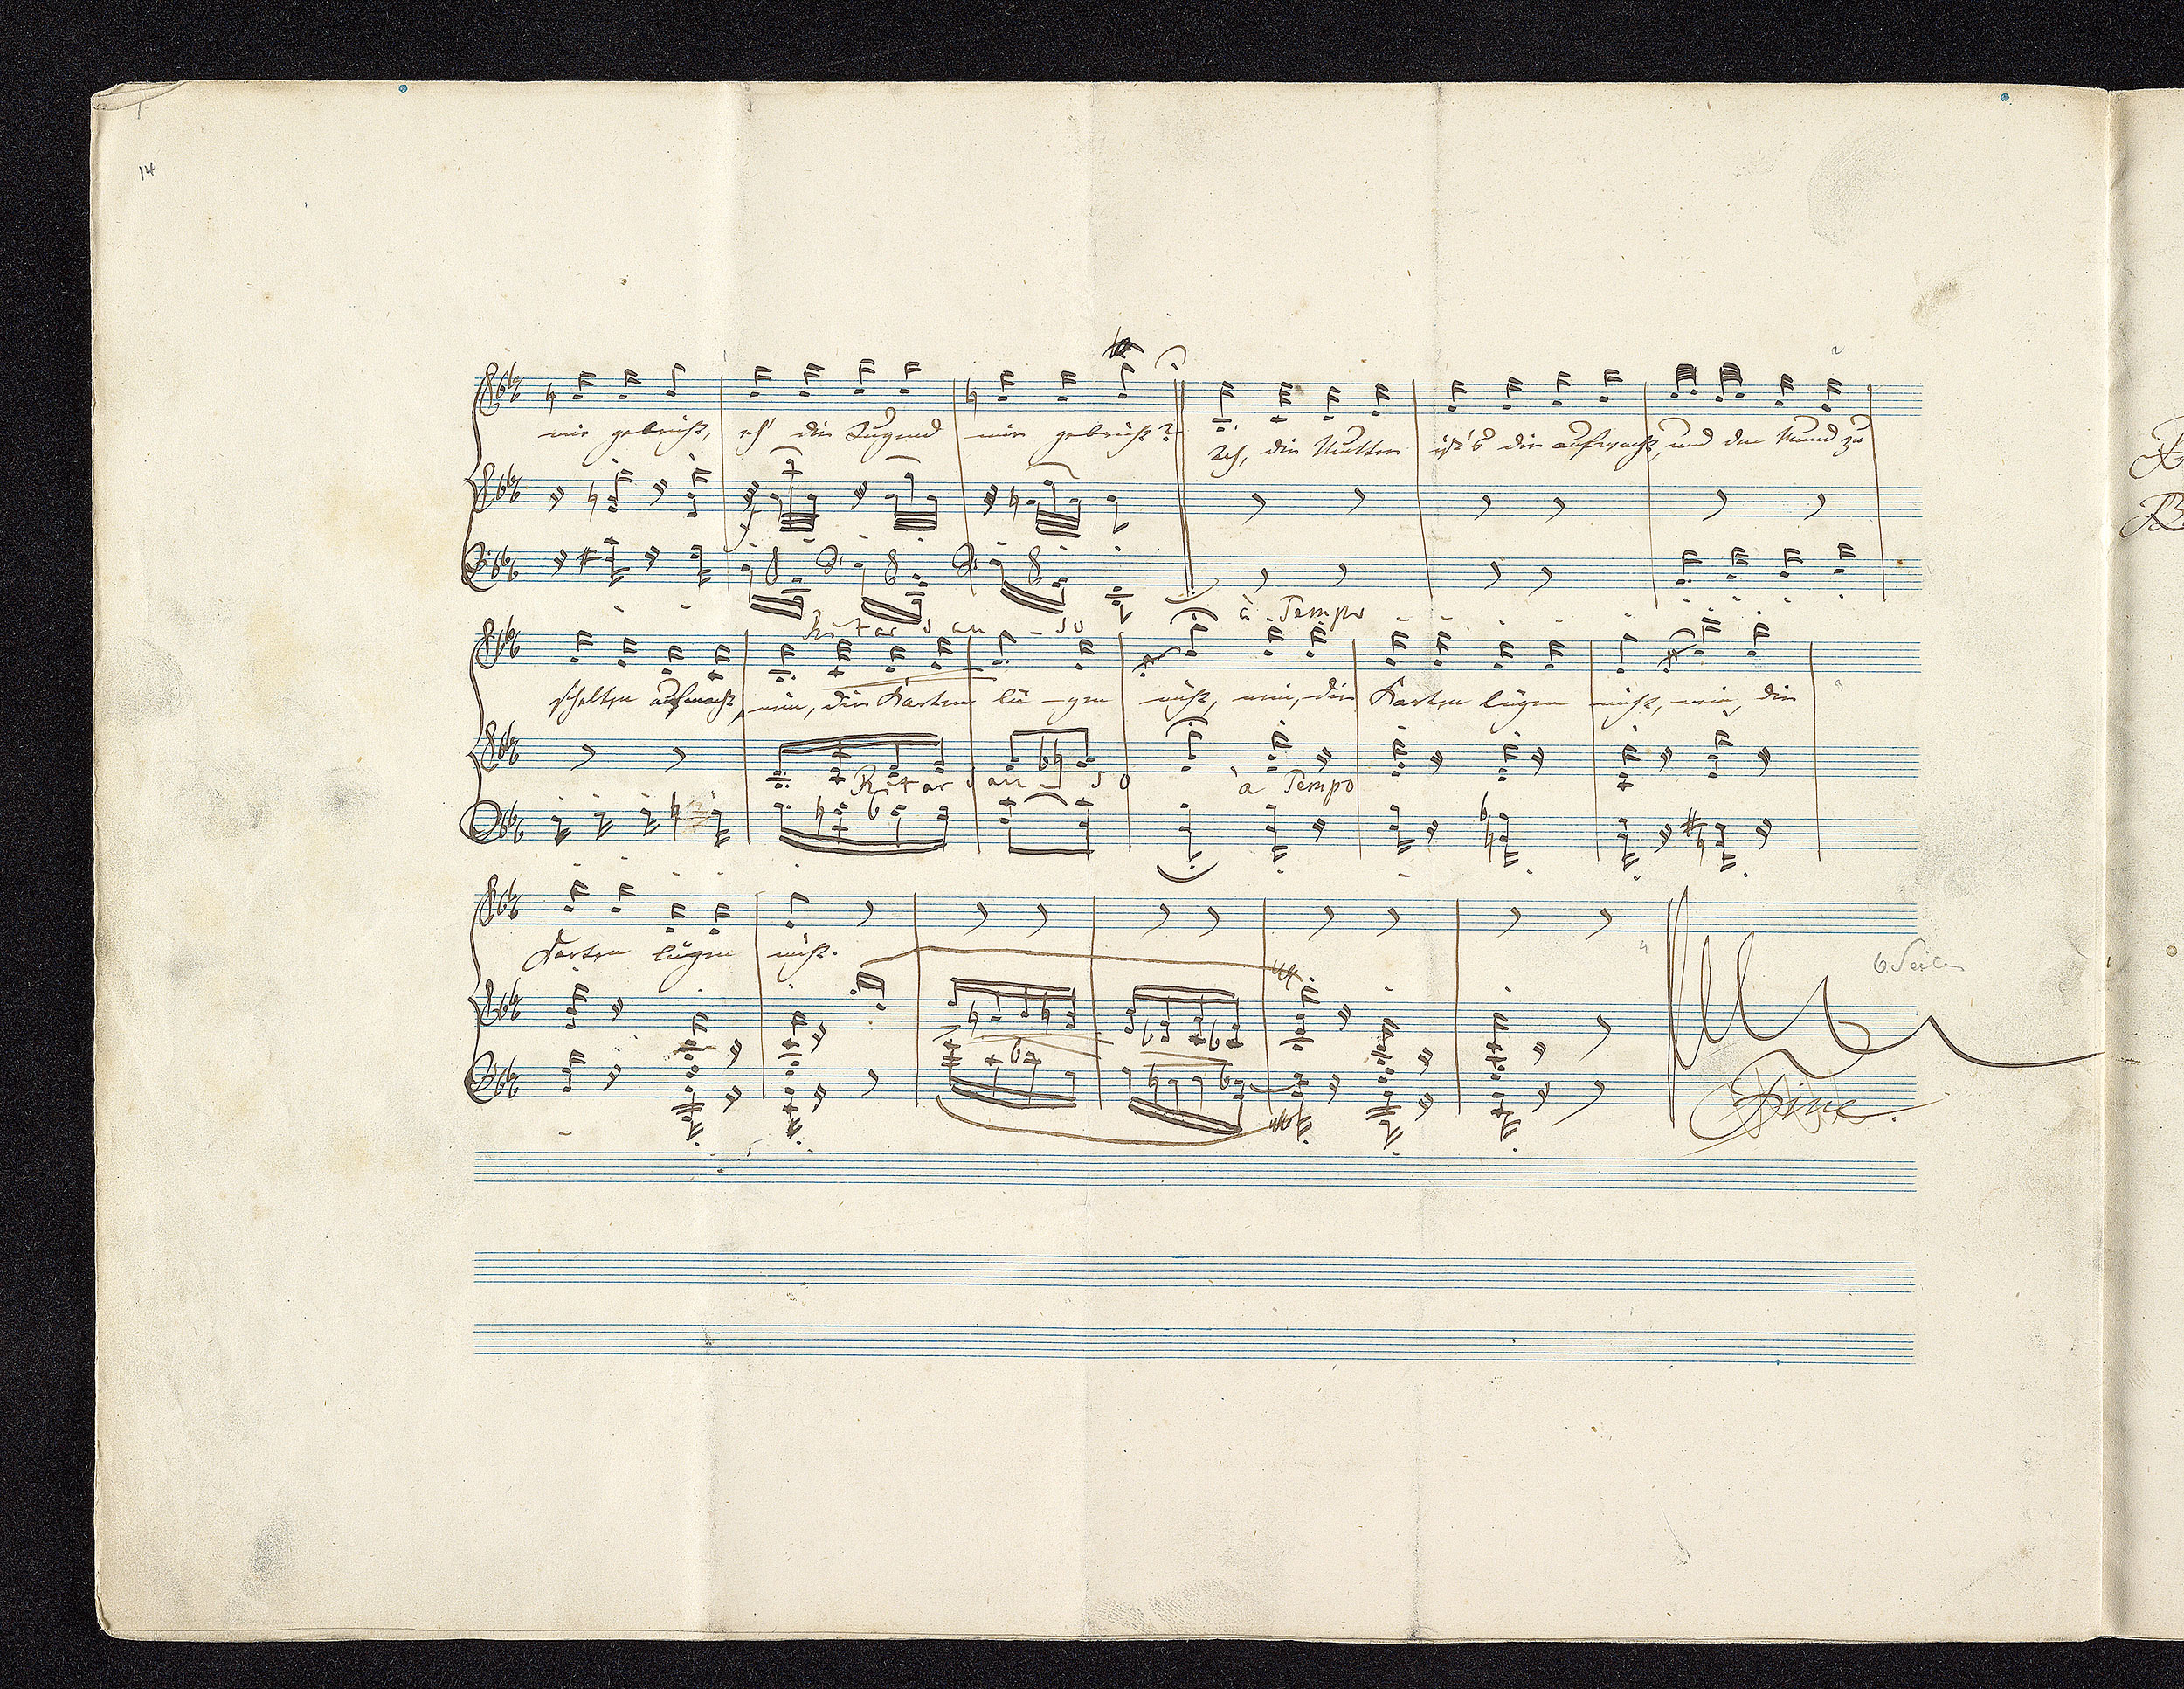 14
mir gebricht, eh' die Jugend mir gebricht? Ach, die Mutter ist's die aufwacht, und den Mund zu
Ritardando à Tempo
schelten aufmacht, nein, die Karten lü-gen nicht, nein, die Karten lügen nicht, nein, die
Ritardando à Tempo
Karten lügen nicht.
6 Seiten
Fine.